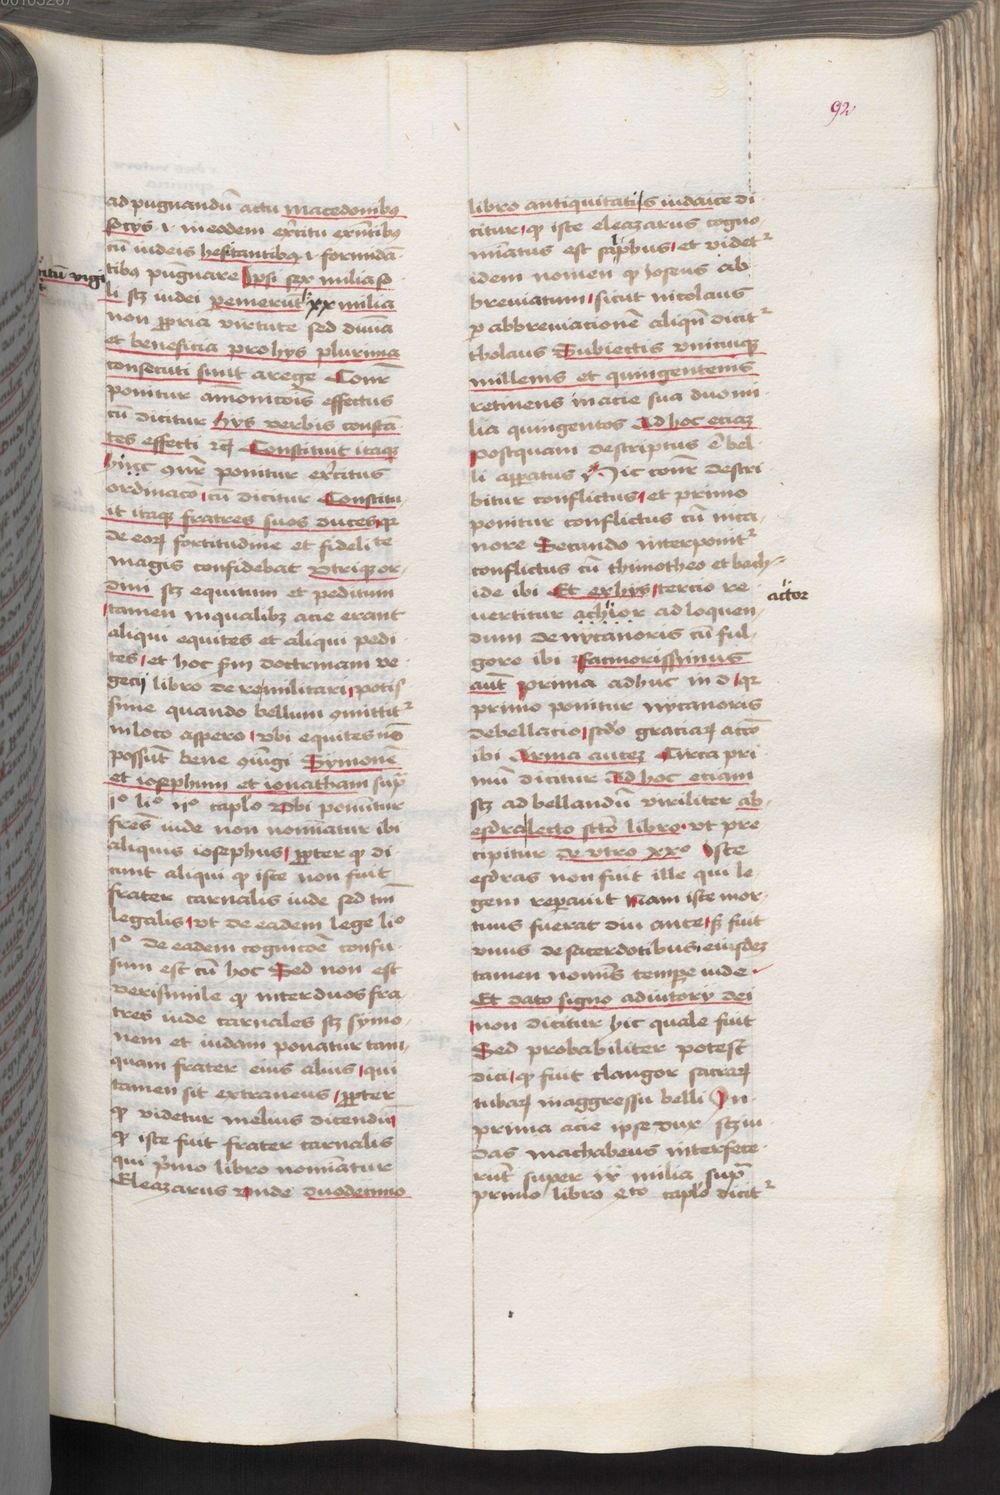 92
ad pugnandū actu macedonibꝰ
socijs .i. in eodem exc̄itu exn̄tibꝰ
cū iudeis hesitantibꝰ .i. formidā
tibꝰ pugnare Ipsi sex milia so
li scꝫ iudei peremerūt xx milia
non ꝓpria virtute sed diuīa
et beneficia pro hijs plurima
consecuti sunt a rege Consꝛ̄
ponitur amōnicōis effectus
cū dicitur hijs verbis constā
tes effecti Constituit itaqꝫ
hinc ꝯnꝛ̄ ponitur exc̄itus
ordinacō cū dicitur Constitu
it itaqꝫ fratres suos duces qꝛ
de eoꝝ fortitudine et fidelitate
magis confidebat vtriqꝫ or
dini scꝫ equitum et peditum
tamen in qualibꝫ acie erant
aliqui equites et aliqui pedi
tes et hoc scd̄m doctrinam ve
gecij libro de re militari potis
sime quando bellum ꝯmittitꝛ
in loco aspero vbi equites nō
possūt bene ꝯiūgi Symonē
et iosephum et ionatham supͣ
Io liº IIº caplo vbi ponūtur
fres̄ iude non nomīatur ibi
aliquis iosephus ꝓpter qꝫ di
cunt aliqui qꝫ iste non fuit
frater carnalis iude sed tm̄
legalis vt de eadem lege liº
Iº de eadem cognicōe consu
sum est cū hoc Sed non est
verisimile qꝫ inter duos fra
tres iude carnales scꝫ symo
nem et iudam ponatur tam
quam frater eius alius qui
tamen sit extraneus ꝓpter
qꝫ videtur melius dicendū
qꝫ iste fuit frater carnalis
qui pͥmo libro nomīatur
Eleazarus vnde duodecimo
libro antiquitatis iudaice di
citur qꝫ iste eleazarus cogno
miatus est iosephus et videtꝛ
idem nomen qꝫ ioseus ab
breuiatum sicut nicolaus
ꝑ abbreuiacionē aliqn̄ dicitꝛ
tholaus Subiectis vnicuiqꝫ
millenis et quingentenis
retinens in acie sua duo mi
lia quingentos Ad hoc etiaꝫ
postquam descriptus ē bel
li apparatus Hic consꝛ̄ descri
bitur conflictus et primo
ponitur conflictus cū nica
nore Secundo interponitꝛ
conflictus cū thimotheo et bach
ide ibi Et ex hijs tercio re
uertitur actor ad loquen
dum de nycanoris cū ful
gore ibi facinorissimus
aūt prima adhuc in d qꝛ
primo ponitur nycanoris
debellacio scd̄o graciaꝝ actō
ibi Arma auteꝫ Circa pri
mū dicitur Ad hoc etiam
scꝫ ad bellandū viriliter ab
esdra lecto sc̄to libro vt pre
cipitur de vtro xxº Iste
esdras non fuit ille qui le
gem reparauit Nam iste mor
tuus fuerat diu ante sꝫ fuit
vnus de sacerdotibus eiusdeꝫ
tamen nomīs tempore iude
Et dato signo adiutorij dei
non dicitur hic quale fuit
Sed probabiliter potest
dici qꝫ fuit clangor sacraꝝ
tubaꝝ in aggressu belli In
prima acie ipse dux scꝫ iu
das machabeus interfece
rūt super ix milia supͣ
primo libro caplo dicitꝛ
actor